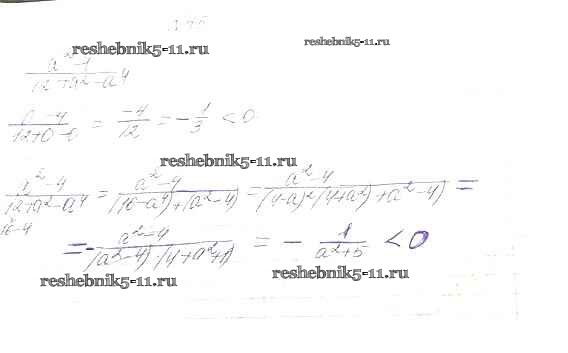 reshebnik5-11.ru reshebnik5-11.ru
(a² - 4)/(12 + a² - a⁴)
(0 - 4)/(12 + 0 - 0) = -4/12 = -1/3 < 0
reshebnik5-11.ru
(a² - 4)/(12 + a² - a⁴) = (a² - 4)/((16 - a⁴) + (a² - 4)) = (a² - 4)/((4 - a)²(4 + a²) + a² - 4) =
16-4
= - (a² - 4)/((a² - 4) · (4 + a² + 1)) = - 1/(a² + 5) < 0
reshebnik5-11.ru reshebnik5-11.ru